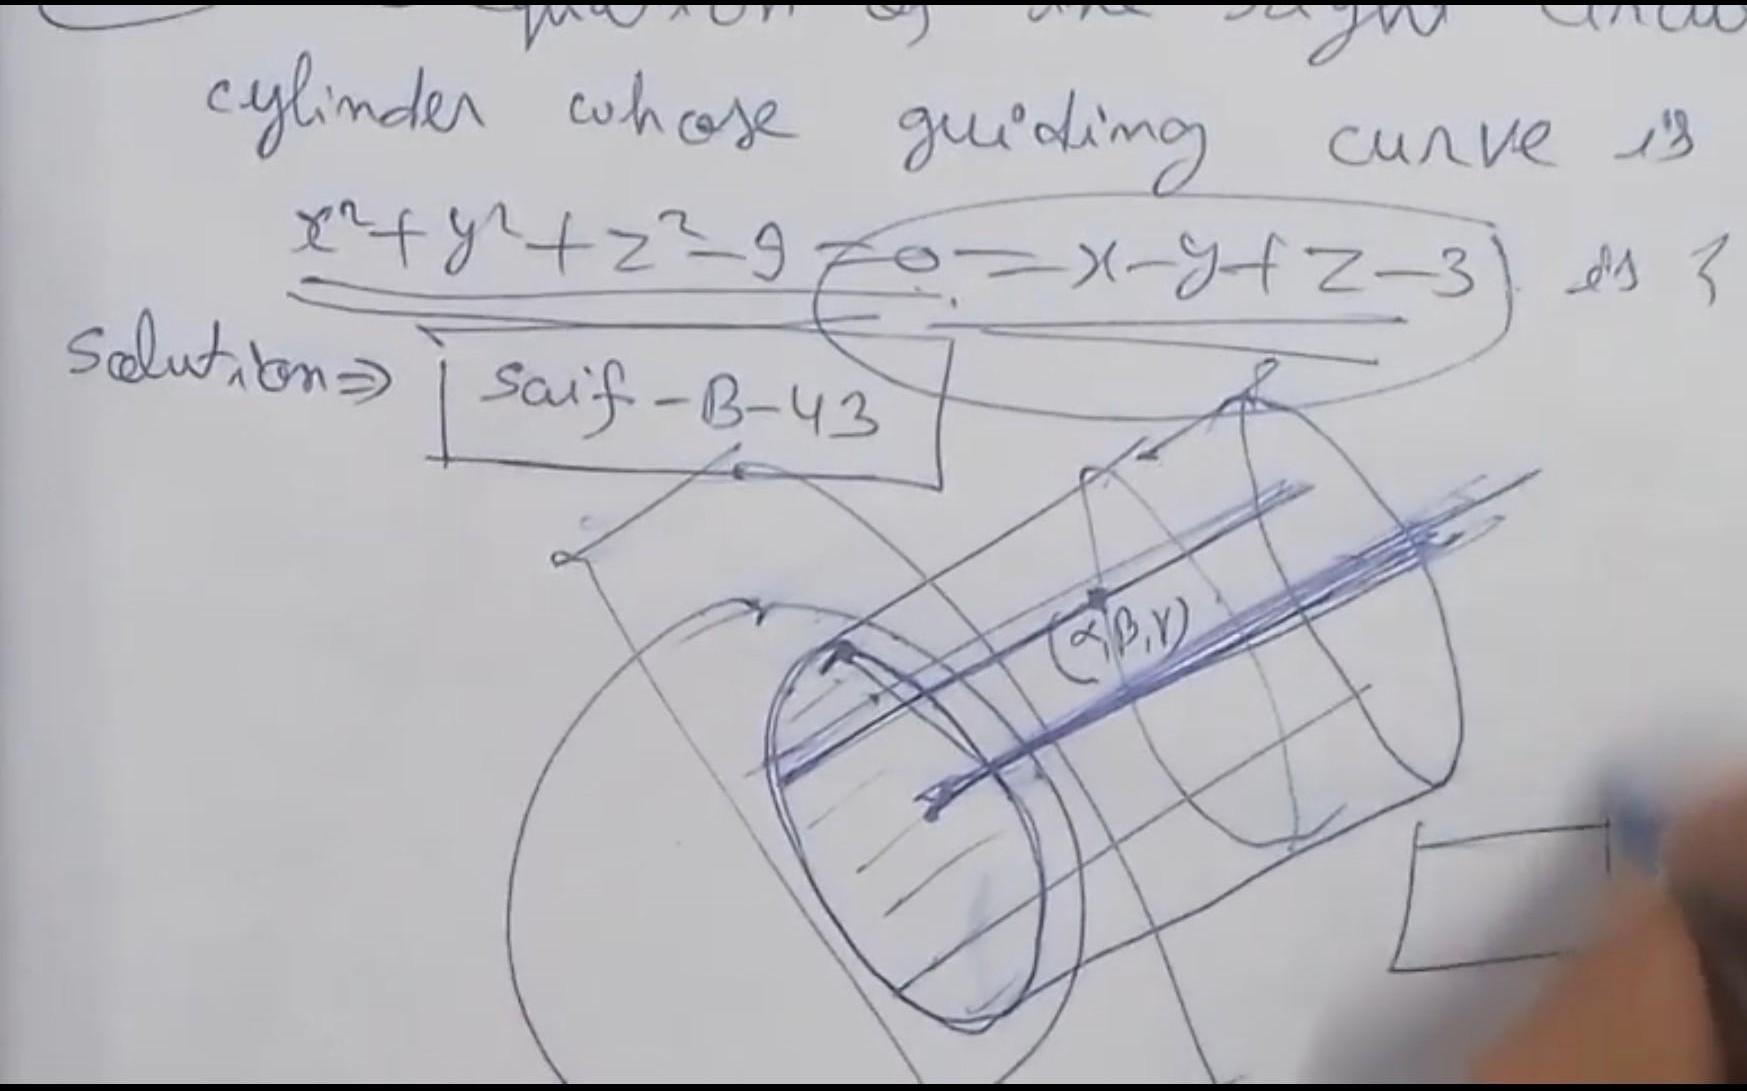 equation of the right circu
cylinder whose guiding curve is
x²+y²+z²-9=0=x-y+z-3 is
Solution⇒ Saif-B-43
(α,β,γ)